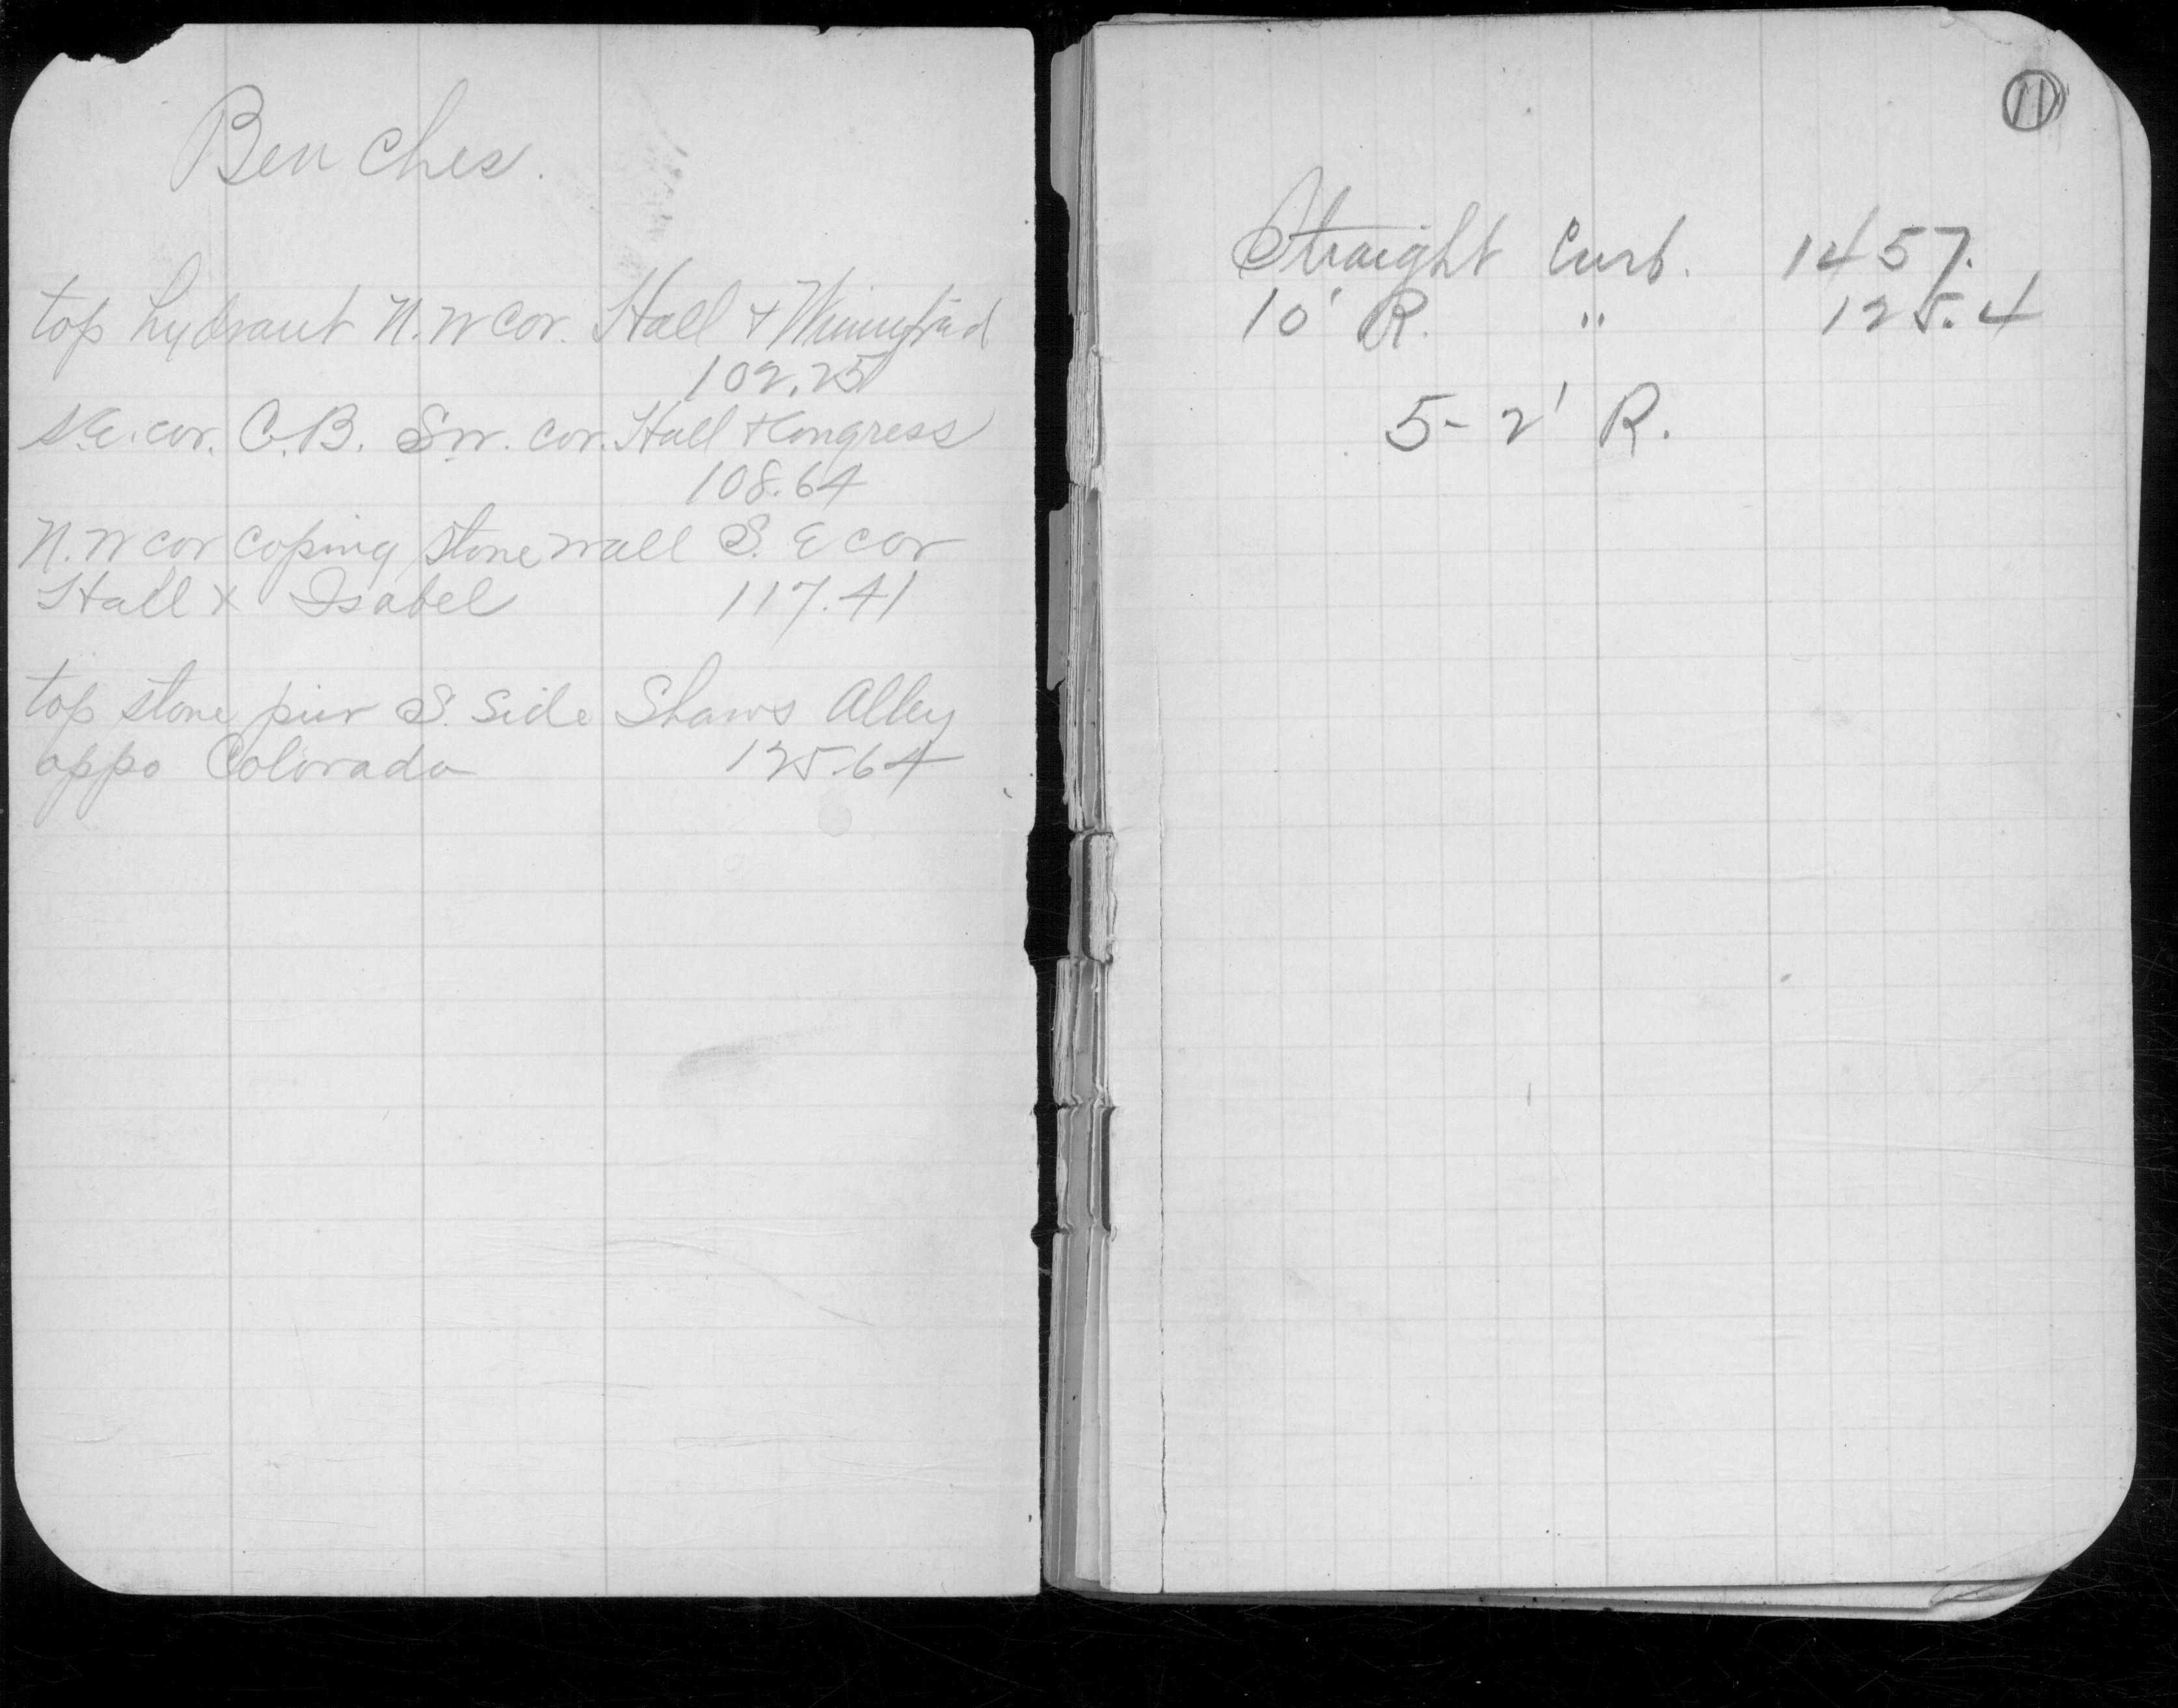 Benches.
top hydrant N.W cor. Hall + Winnifred
102.25
N.E. cor. C.B. S.W. cor. Hall + Congress
108.64
N.W cor coping stone wall S. E cor
Hall + Isabel 117.41
top stone pier S. Side Shaws Alley
oppo Colorado 125.64
11
Straight Curb. 1457.
10' R. " 125.4
5-2' R.